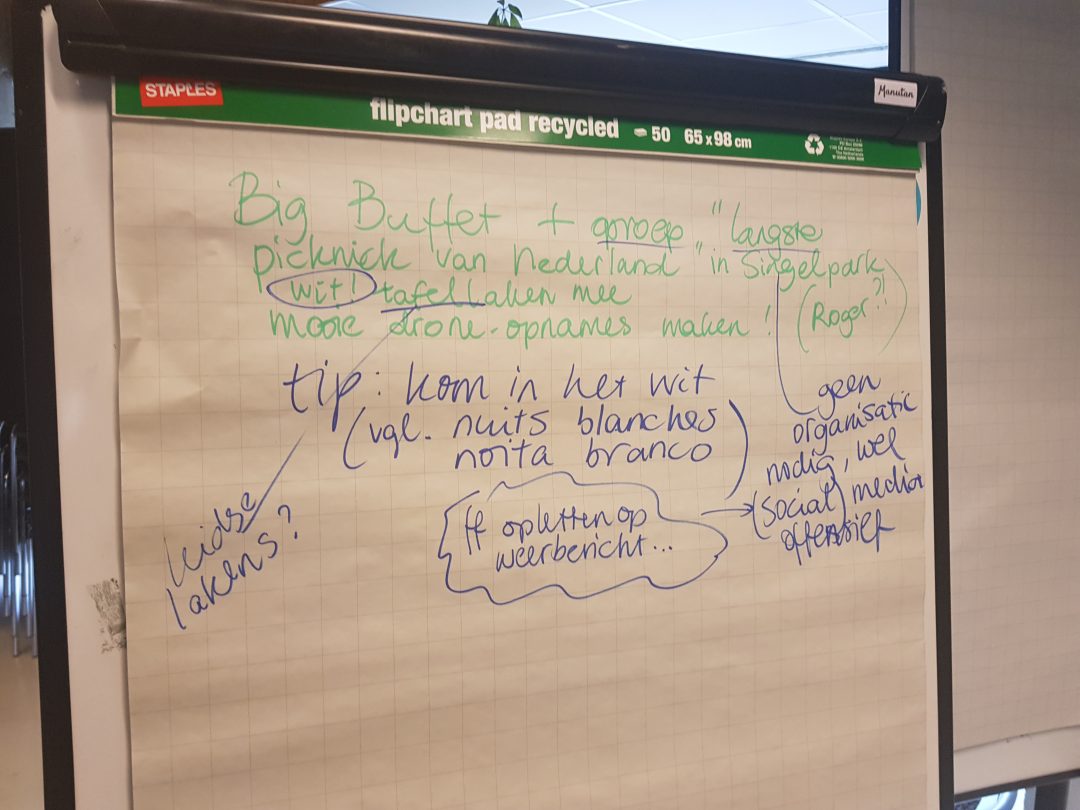 STAPLES
flipchart pad recycled 50 65 x 98 cm
Manutan
Big Buffet + oproep "langste
picknick van Nederland" in Singelpark
wit! tafellaken mee
mooie drone-opnames maken! (Roger?!)
tip: kom in het wit
(vgl. nuits blanches
noita branco)
geen
organisatie
nodig, wel
(social) media
offensief
ff opletten op
weerbericht...
leidse
lakens?